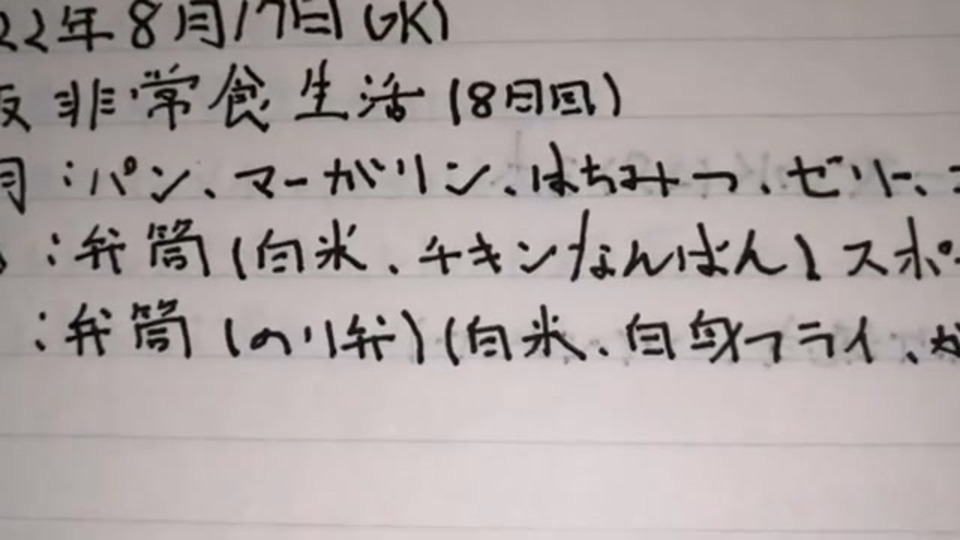 22年8月17日(水)
非常食生活(8日目)
:パン、マーガリン、はちみつ、ゼリー、
:弁筒(白米、チキンなんばん)スポ
:弁筒(のり弁)(白米、白身フライ、か